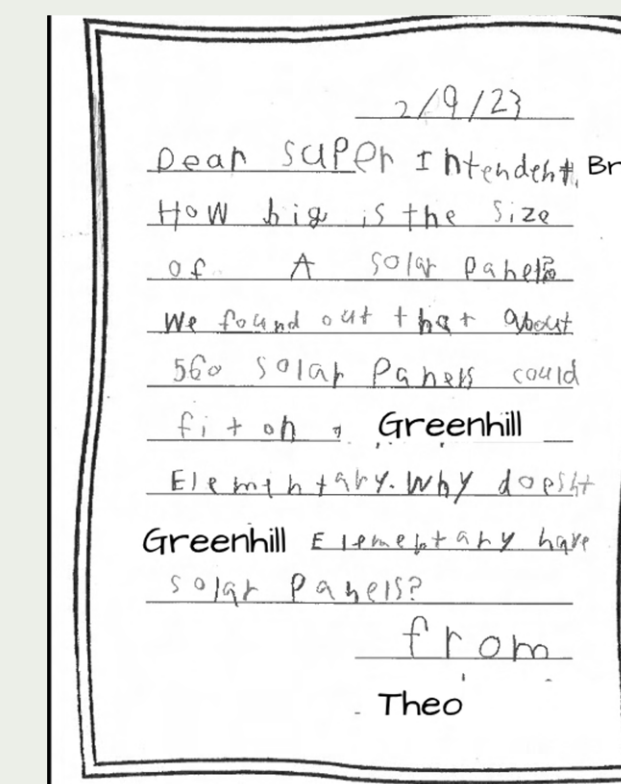 2/9/23
Dear SUPER Intendent, Br
HOW big is the Size
of A Solar Panel
We found out that about
560 Solar Panels could
fit on Greenhill
Elemtntary. Why doesnt
Greenhill Elementary have
Solar Panels?
from
Theo